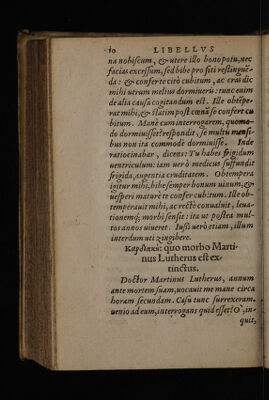 10 LIBELLVS
na nobiscum, & utere illo bono potu, nec
facias excessum, sed bibe pro siti restinguẽ-
da: & conferte citò cubitum, ac cras dic
mihi utrum melius dormiueris: tunc enim
de alia causa cogitandum est. Ille obtẽpe-
rat mihi, & statim post cenã se confert cu
bitum. Manè cum interrogarem, quomo-
do dormiuisset? respondit, se multis mensi-
bus non ita commodè dormiuisse. Inde
ratiocinabar, dicens: Tu habes frigidum
uentriculum: iam uerò medicus suffundit
frigida, augentia cruditatem. Obtempera
igitur mihi, bibe semper bonum uinum, &
uesperi maturè te confer cubitum. Ille ob-
temperauit mihi, ac rectè conualuit, leua-
tionemq́; morbi sensit: ita ut postea mul-
tos annos uiueret. Iussi uerò etiam, illum
interdum uti zingibere.
quo morbo Marti-
nus Lutherus est ex-
tinctus.
Doctor Martinus Lutherus, annum
ante mortem suam, uocauit me mane circa
horam secundam. Casu tunc surrexeram.
uenio ad eum, interrogans quid esset? O, in-
quit,